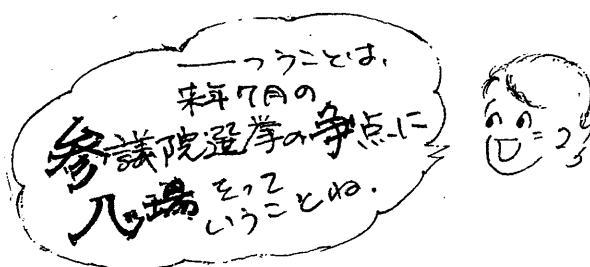 ――つうことは、
来年7月の
参議院選挙の争点に
八ッ場をって
いうことね.